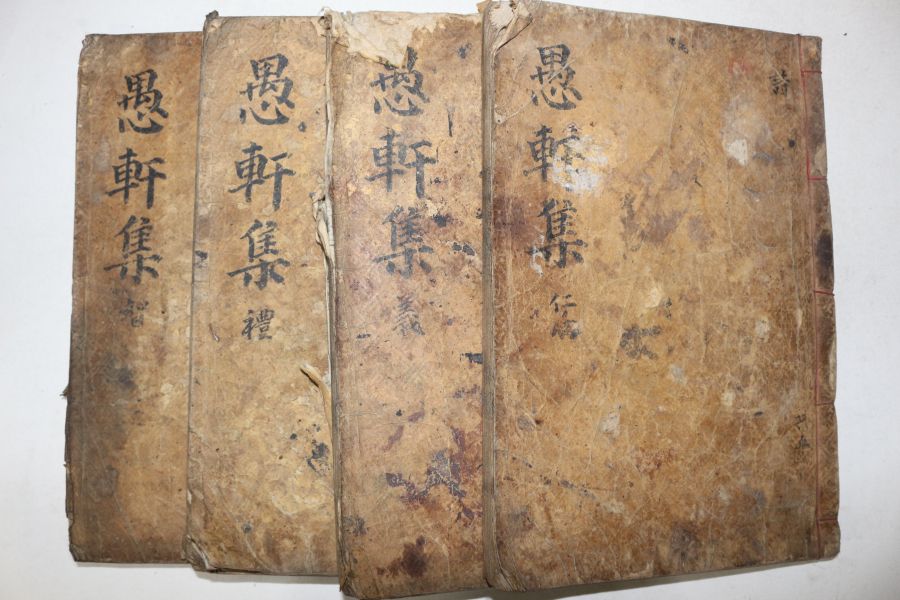 愚軒集
仁
詩
愚軒集
義
愚軒集
禮
愚軒集
智